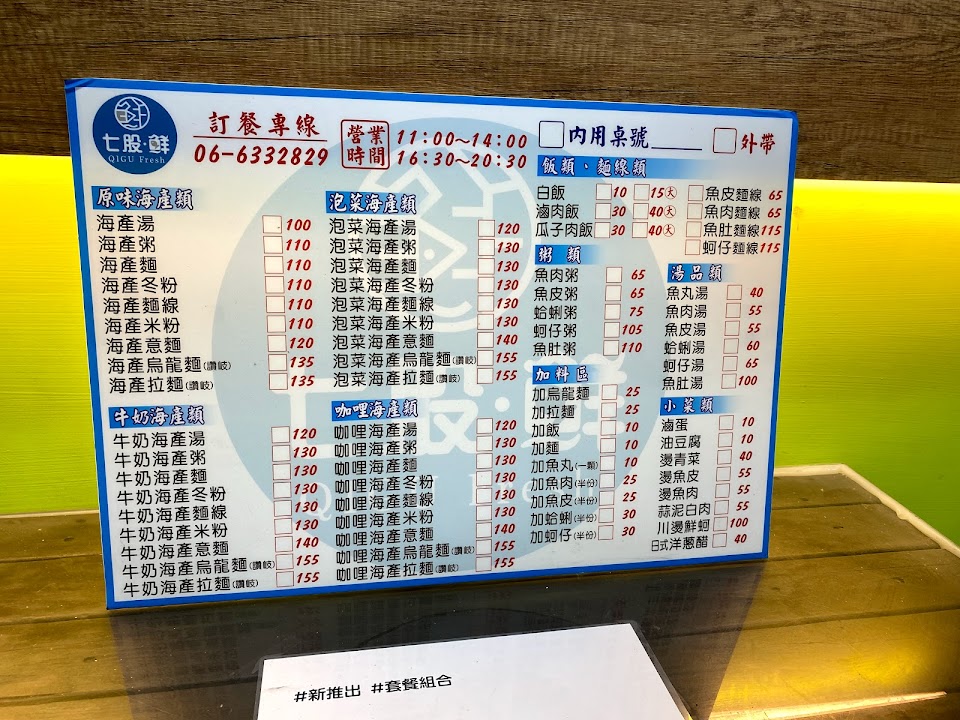 七股鮮
QIGU Fresh
訂餐專線
06-6332829
營業時間
11:00~14:00
16:30~20:30
內用桌號
外帶
原味海產類
海產湯 100
海產粥 110
海產麵 110
海產冬粉 110
海產麵線 110
海產米粉 110
海產意麵 120
海產烏龍麵(讚岐) 135
海產拉麵(讚岐) 135
牛奶海產類
牛奶海產湯 120
牛奶海產粥 130
牛奶海產麵 130
牛奶海產冬粉 130
牛奶海產麵線 130
牛奶海產米粉 130
牛奶海產意麵 140
牛奶海產烏龍麵(讚岐) 155
牛奶海產拉麵(讚岐) 155
泡菜海產類
泡菜海產湯 120
泡菜海產粥 130
泡菜海產麵 130
泡菜海產冬粉 130
泡菜海產麵線 130
泡菜海產米粉 130
泡菜海產意麵 140
泡菜海產烏龍麵(讚岐) 155
泡菜海產拉麵(讚岐) 155
咖哩海產類
咖哩海產湯 120
咖哩海產粥 130
咖哩海產麵 130
咖哩海產冬粉 130
咖哩海產麵線 130
咖哩海產米粉 130
咖哩海產意麵 140
咖哩海產烏龍麵(讚岐) 155
咖哩海產拉麵(讚岐) 155
飯類、麵線類
白飯 10 15大
滷肉飯 30 40大
瓜子肉飯 30 40大
魚皮麵線 65
魚肉麵線 65
魚肚麵線 115
蚵仔麵線 115
粥類
魚肉粥 65
魚皮粥 65
蛤蜊粥 75
蚵仔粥 105
魚肚粥 110
加料區
加烏龍麵 25
加拉麵 25
加飯 10
加麵 10
加魚丸(一顆) 10
加魚肉(半份) 25
加魚皮(半份) 25
加蛤蜊(半份) 30
加蚵仔(半份) 30
湯品類
魚丸湯 40
魚肉湯 55
魚皮湯 55
蛤蜊湯 60
蚵仔湯 65
魚肚湯 100
小菜類
滷蛋 10
油豆腐 10
燙青菜 40
燙魚皮 55
燙魚肉 55
蒜泥白肉 55
川燙鮮蚵 100
日式洋蔥醋 40
#新推出 #套餐組合